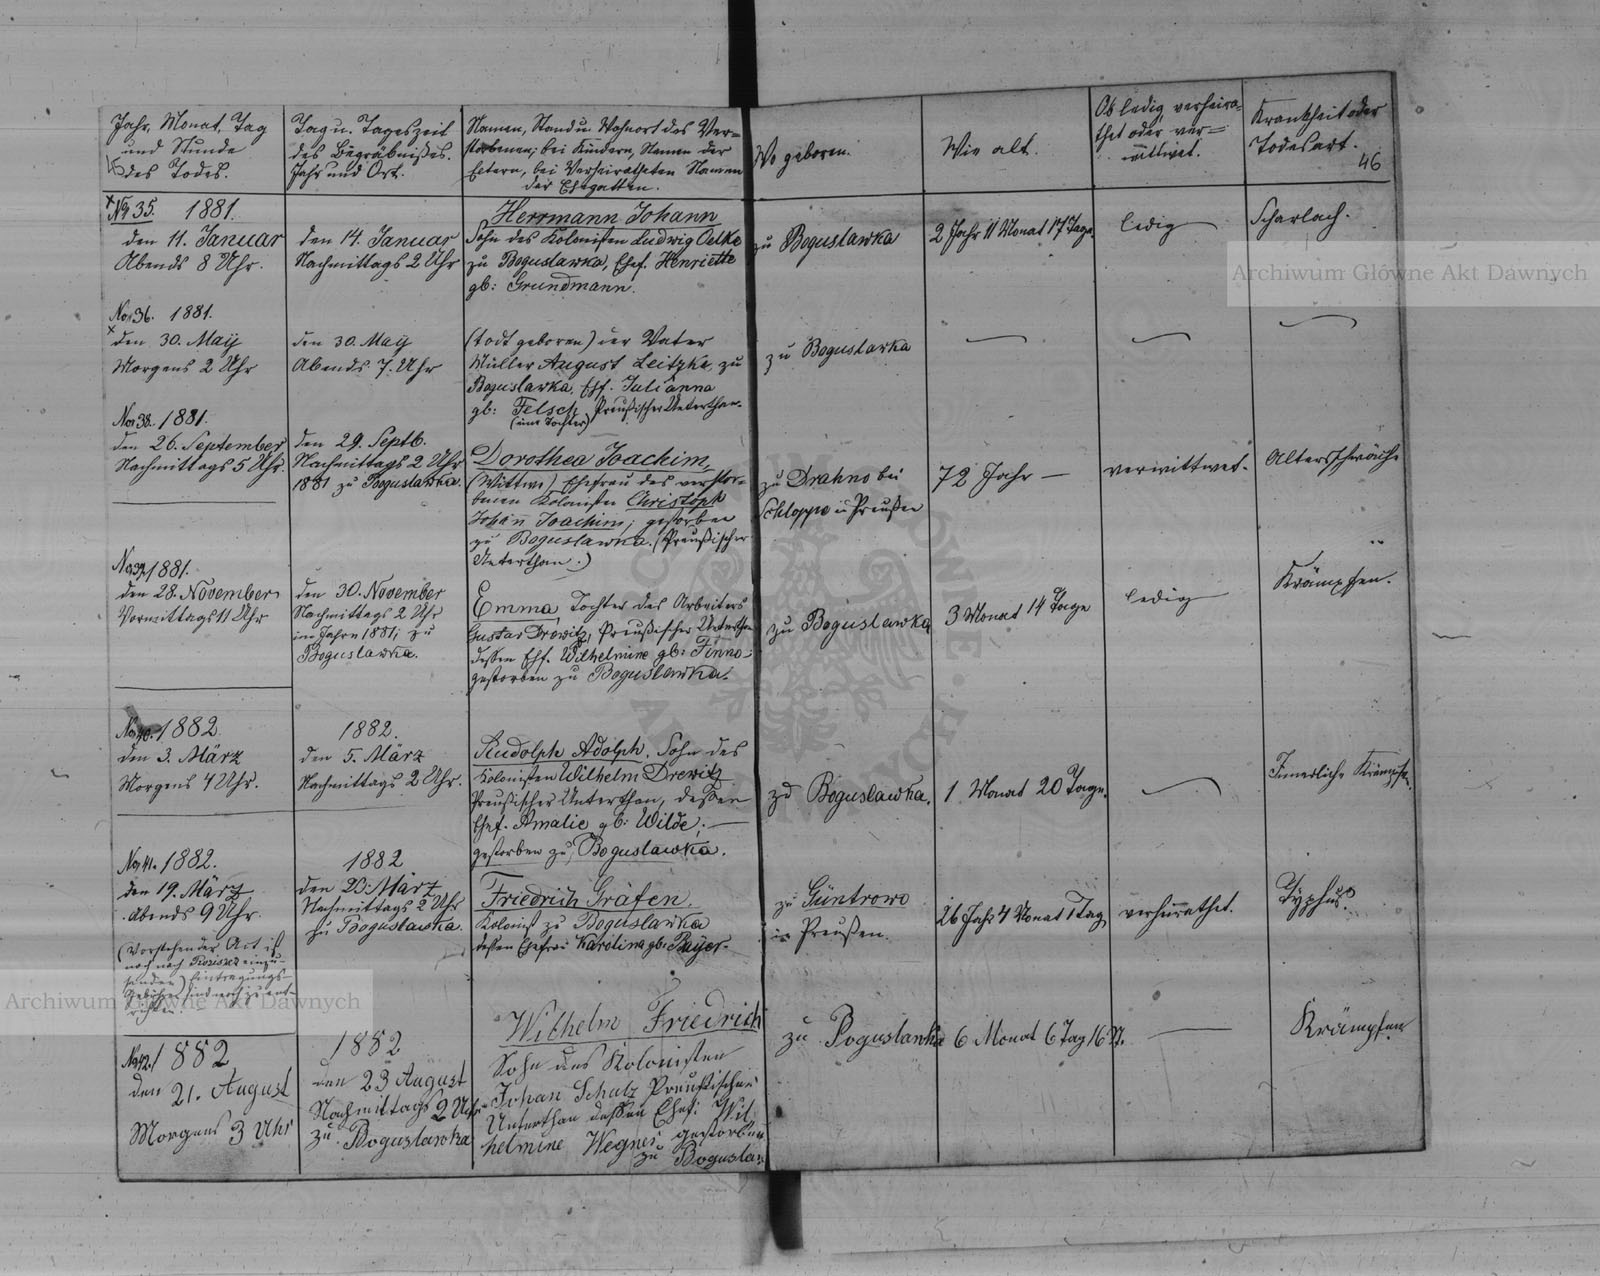 Jahr, Monat, Tag
und Stunde
des Todes.
Tag u. Tageszeit
des Begräbnißes.
Jahr und Ort.
Namen, Stand u. Wohnort des Ver-
storbenen; bei Kindern, Namen der
Eltern, bei Verheiratheten Namen
der Ehegatten.
Wo geboren.
Wie alt.
Ob ledig, verheira-
thet oder ver-
wittwet.
Krankheit oder
Todesart.
46
No 35. 1881.
den 11. Januar
Abends 8 Uhr.
den 14. Januar
Nachmittags 2 Uhr
Herrmann Johann
Sohn des Kolonisten Ludwig Oelke
zu Boguslawka, Ehef. Henriette
gb: Grundmann.
zu Boguslawka
2 Jahr 11 Monat 17 Tage.
ledig
Scharlach.
No 36. 1881.
den 30. May
Morgens 2 Uhr
den 30. May
Abends 7. Uhr
(todt geboren) der Vater
Müller August Leitzke, zu
Boguslawka, Ehf. Julianna
gb: Felsch, Preußischer Unterthan.
(eine Tochter)
zu Boguslawka
No 38. 1881.
den 26. September
Nachmittags 5 Uhr.
den 29. Septb.
Nachmittags 2 Uhr
1881 zu Boguslawka.
Dorothea Joachim,
(Wittwe) Ehefrau des verstor-
benen Kolonisten Christoph
Johann Joachim; gestorben
zu Boguslawka. (Preußischer
Unterthan.)
zu Drahno bei
Schloppe in Preußen
72 Jahr —
verwittwet.
Altersschwäche
No 39. 1881.
den 28. November
Vormittags 11 Uhr
den 30. November
Nachmittags 2 Uhr
im Jahre 1881, zu
Boguslawka.
Emma, Tochter des Arbeiters
Gustav Drewitz, Preußischer Unterthan
deßen Ehf. Wilhelmine gb: Finno
gestorben zu Boguslawka.
zu Boguslawka
3 Monat 14 Tage
ledig
Krämpfen.
No 40. 1882
den 3. März
Morgens 4 Uhr.
1882.
den 5. März
Nachmittags 2 Uhr.
Rudolph Adolph, Sohn des
Kolonisten Wilhelm Drewitz
Preußischer Unterthan, deßen
Ehef. Amalie gb: Wilde; —
gestorben zu Boguslawka.
zu Boguslawka.
1 Monat 20 Tage.
Innerliche Krämpfe.
No 41. 1882.
den 19. März
Abends 9 Uhr.
(Vorstehender Act ist
noch nach Roziszcz einzu-
senden) Eintragungs-
Gebühren sind noch zu ent-
richten.
1882
den 23. März
Nachmittags 2 Uhr
zu Boguslawka.
Friedrich Gräfen.
Kolonist zu Boguslawka
deßen Ehefrau Karolina gb:
zu Güntrowo
in Preußen.
26 Jahr 4 Monat 1 Tag
verheirathet.
Typhus.
No 42. 1882
den 21. August
Morgens 3 Uhr
1882
den 23 August
Nachmittags 2 Uhr
zu Boguslawka
Wilhelm Friedrich
Sohn des Kolonisten
Johan Schulz Preußischer
Unterthan deßen Ehef: Wil
helmine Wegner gestorben
zu Bogusla
zu Boguslawka
6 Monat 6 Tag
Krämpfen
Archiwum Główne Akt Dawnych
Archiwum Główne Akt Dawnych